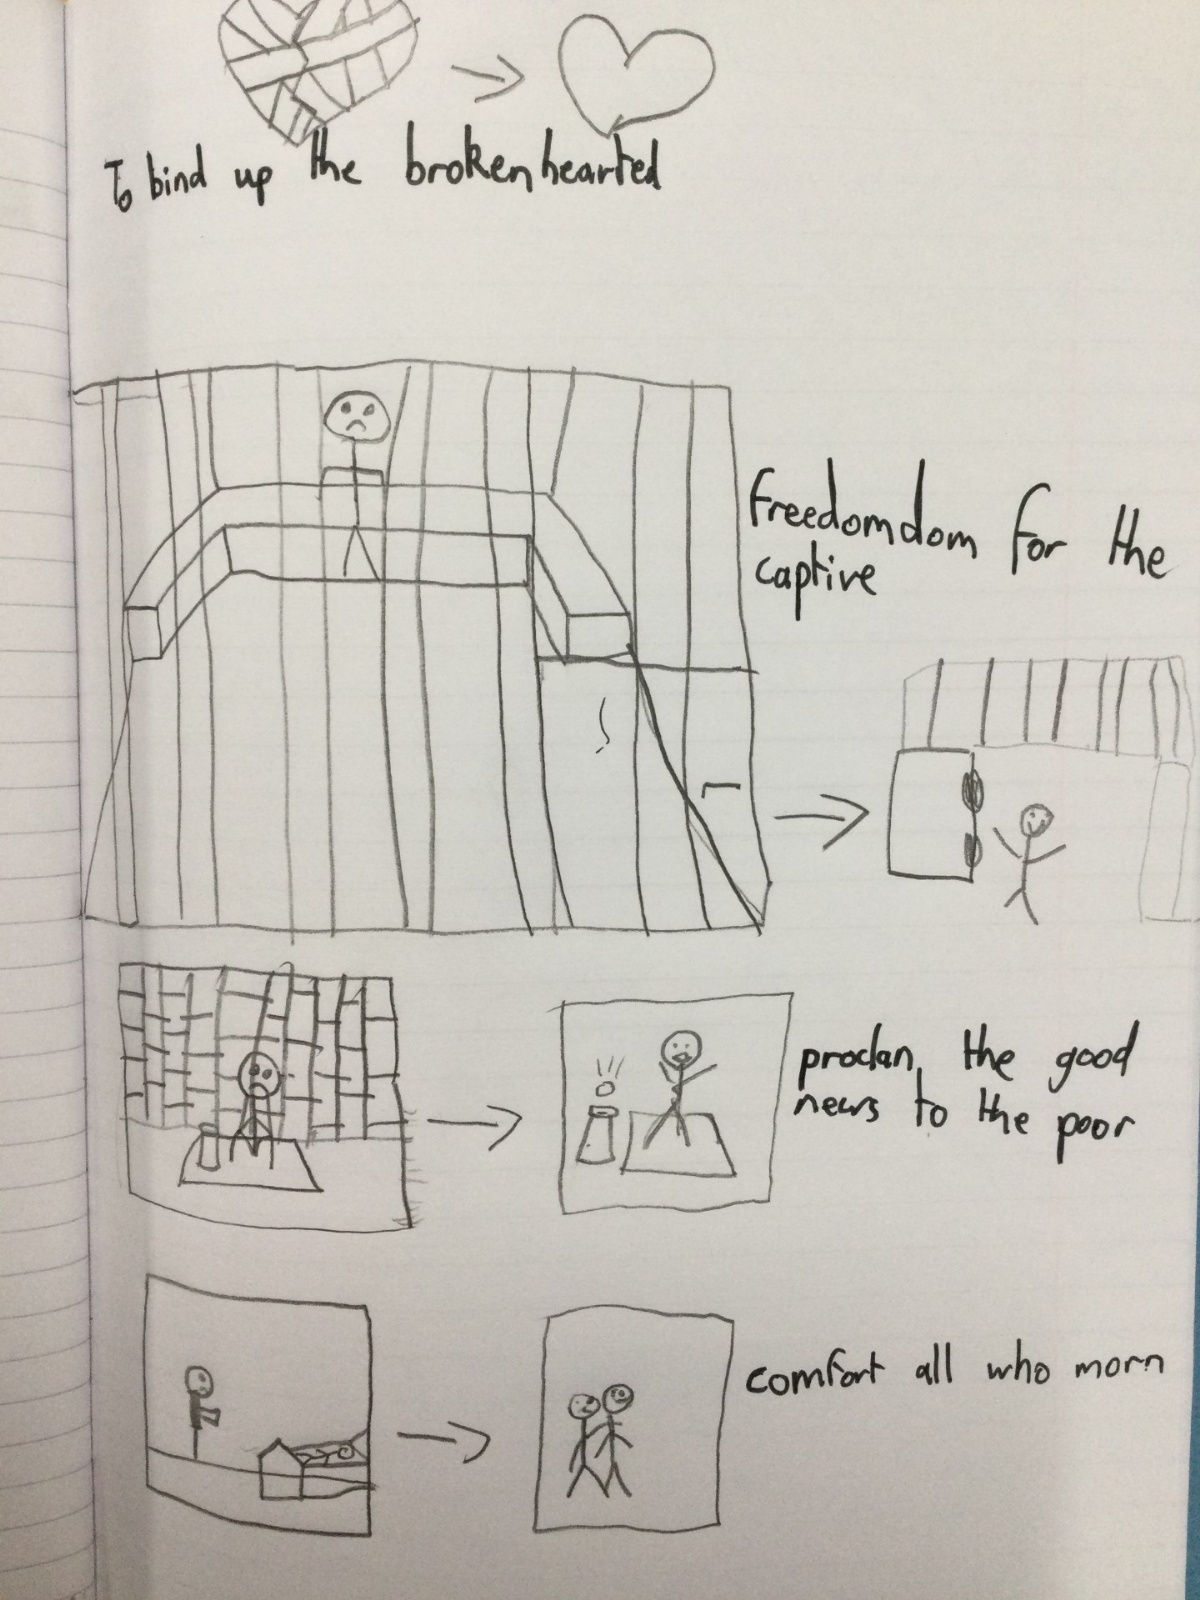 To bind up the brokenhearted
Freedomdom for the
captive
proclan the good
news to the poor
comfort all who morn